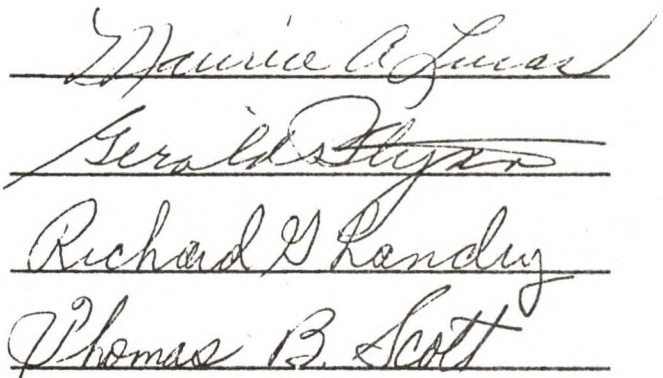 Maurice A Lucas
Gerald Flynn
Richard G Landry
Thomas B. Scott